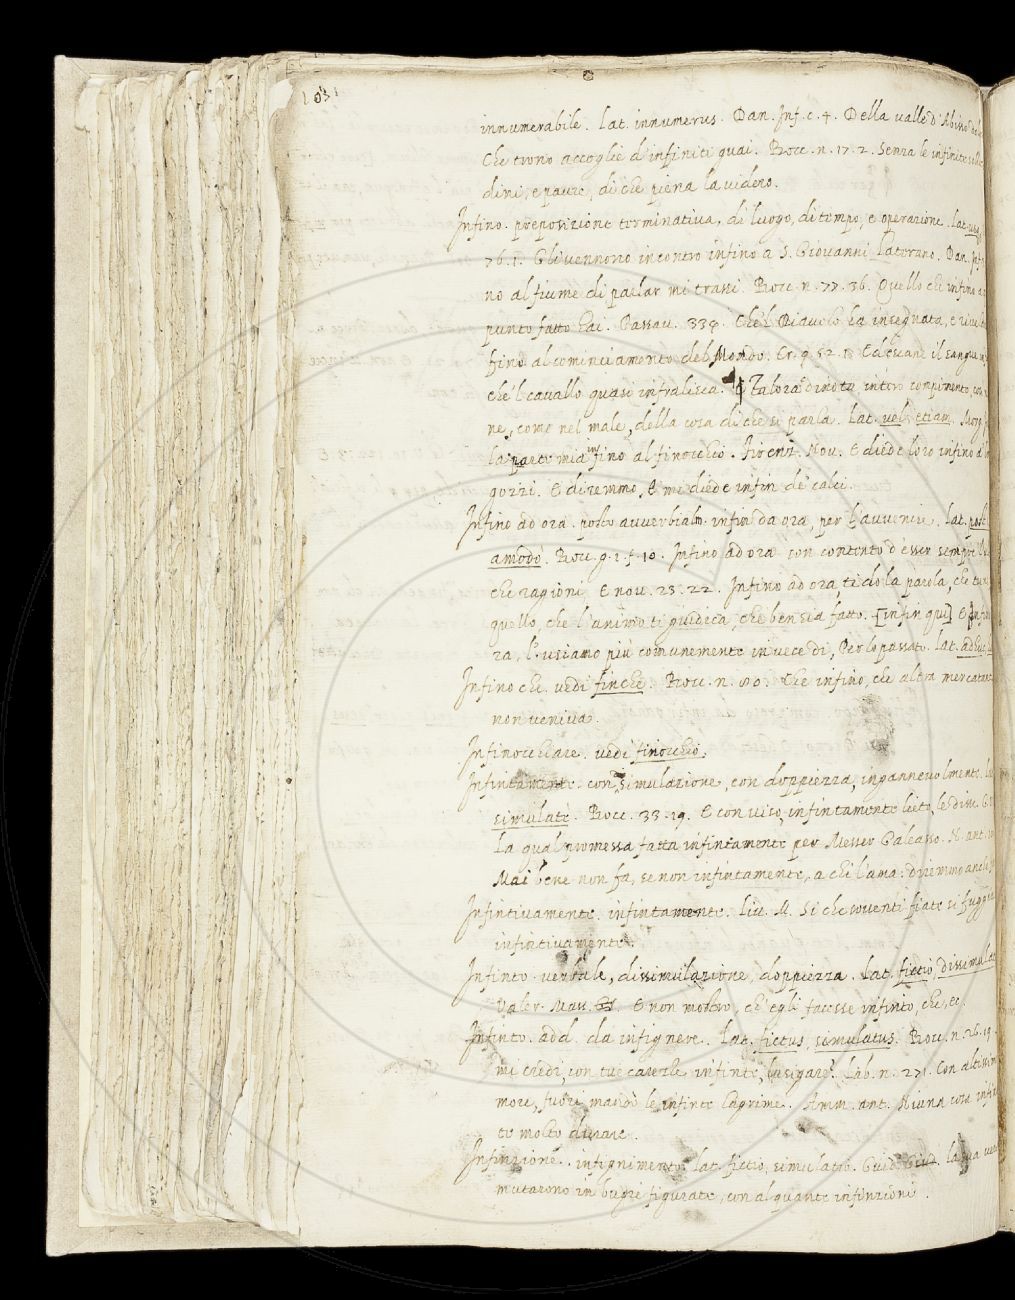 1031
innumerabile. Lat. innumerus. Dan. Inf. c. 4. Della valle d'Abisso
Che trono accoglie d'infiniti guai. Bocc. n. 17. 2. Senza le infinite
dini, e paure, di che piena la videro.
Infino. preposizione terminativa, di luogo, di tempo, e operazione. Lat.
76. 1. Gli vennono incontro infino a S. Giovanni Laterano. Dan.
no al fiume di parlar mi trassi. Bocc. n. 77. 36. Quello che infino a
punto fatto hai. Passav. 338. Che'l Diavolo ha insegnato, e
fino al cominciamento del Mondo. Cr. 9. 52. Ed esuane il sangue
che'l cavallo quasi infralisca. Talora dinota intero compimento,
ne, come nel male, della cosa di che si parla. Lat. vel, etiam.
la parte mia infino al finocchio. Fioren. Nov. E diede loro infino
gozzi. E diremmo, E mi diede infin de' calci.
Infino ad ora. posto avverbialm. infin da ora, per l'avvenire. Lat. post
amodo. Bocc. g. 1. f. 10. Infino ad ora son contento d'esser sempre
che ragioni. E nov. 23. 22. Infino ad ora, ti do la parola, che
quello, che l'animo ti giudica, che ben sia fatto. [infin qui] E
ra, l'usiamo più comunemente in vece di, Per lo passato. Lat. adhuc,
Infino che. vedi finche. Bocc. n. 80. Che infino, che altra
non veniva.
Infinocchiare. vedi finocchio.
Infintamente. con simulazione, con doppiezza, ingannevolmente.
simulate. Bocc. 33. 19. E con viso, infintamente lieto, le disse.
La qual promessa fatta infintamente per Messer Galeasso. N. ant.
Mai bene non fa, se non infintamente, a chi l'ama. diremmo anche
Infintivamente. infintamente. Liv. M. Si che soventi fiate si
infintivamente.
Infinto. verbale, dissimulazione, doppiezza. Lat. fictio,
Valer. Mass. E non mostrò, ch'egli facesse infinto, che, ec.
Infinto. add. da infignere. Lat. fictus, simulatus. Bocc. n. 26. 19.
mi credi, con tue carezze infinte, lusigare. Lab. n. 271. Con
more, fuori mandò le infinte lagrime. Amm. ant. Niuna cosa
te molto durare.
Infinzione. infignimento. Lat. fictio, simulatio. Guid. la sua
mutarono in bugie figurate, con alquante infinzioni.